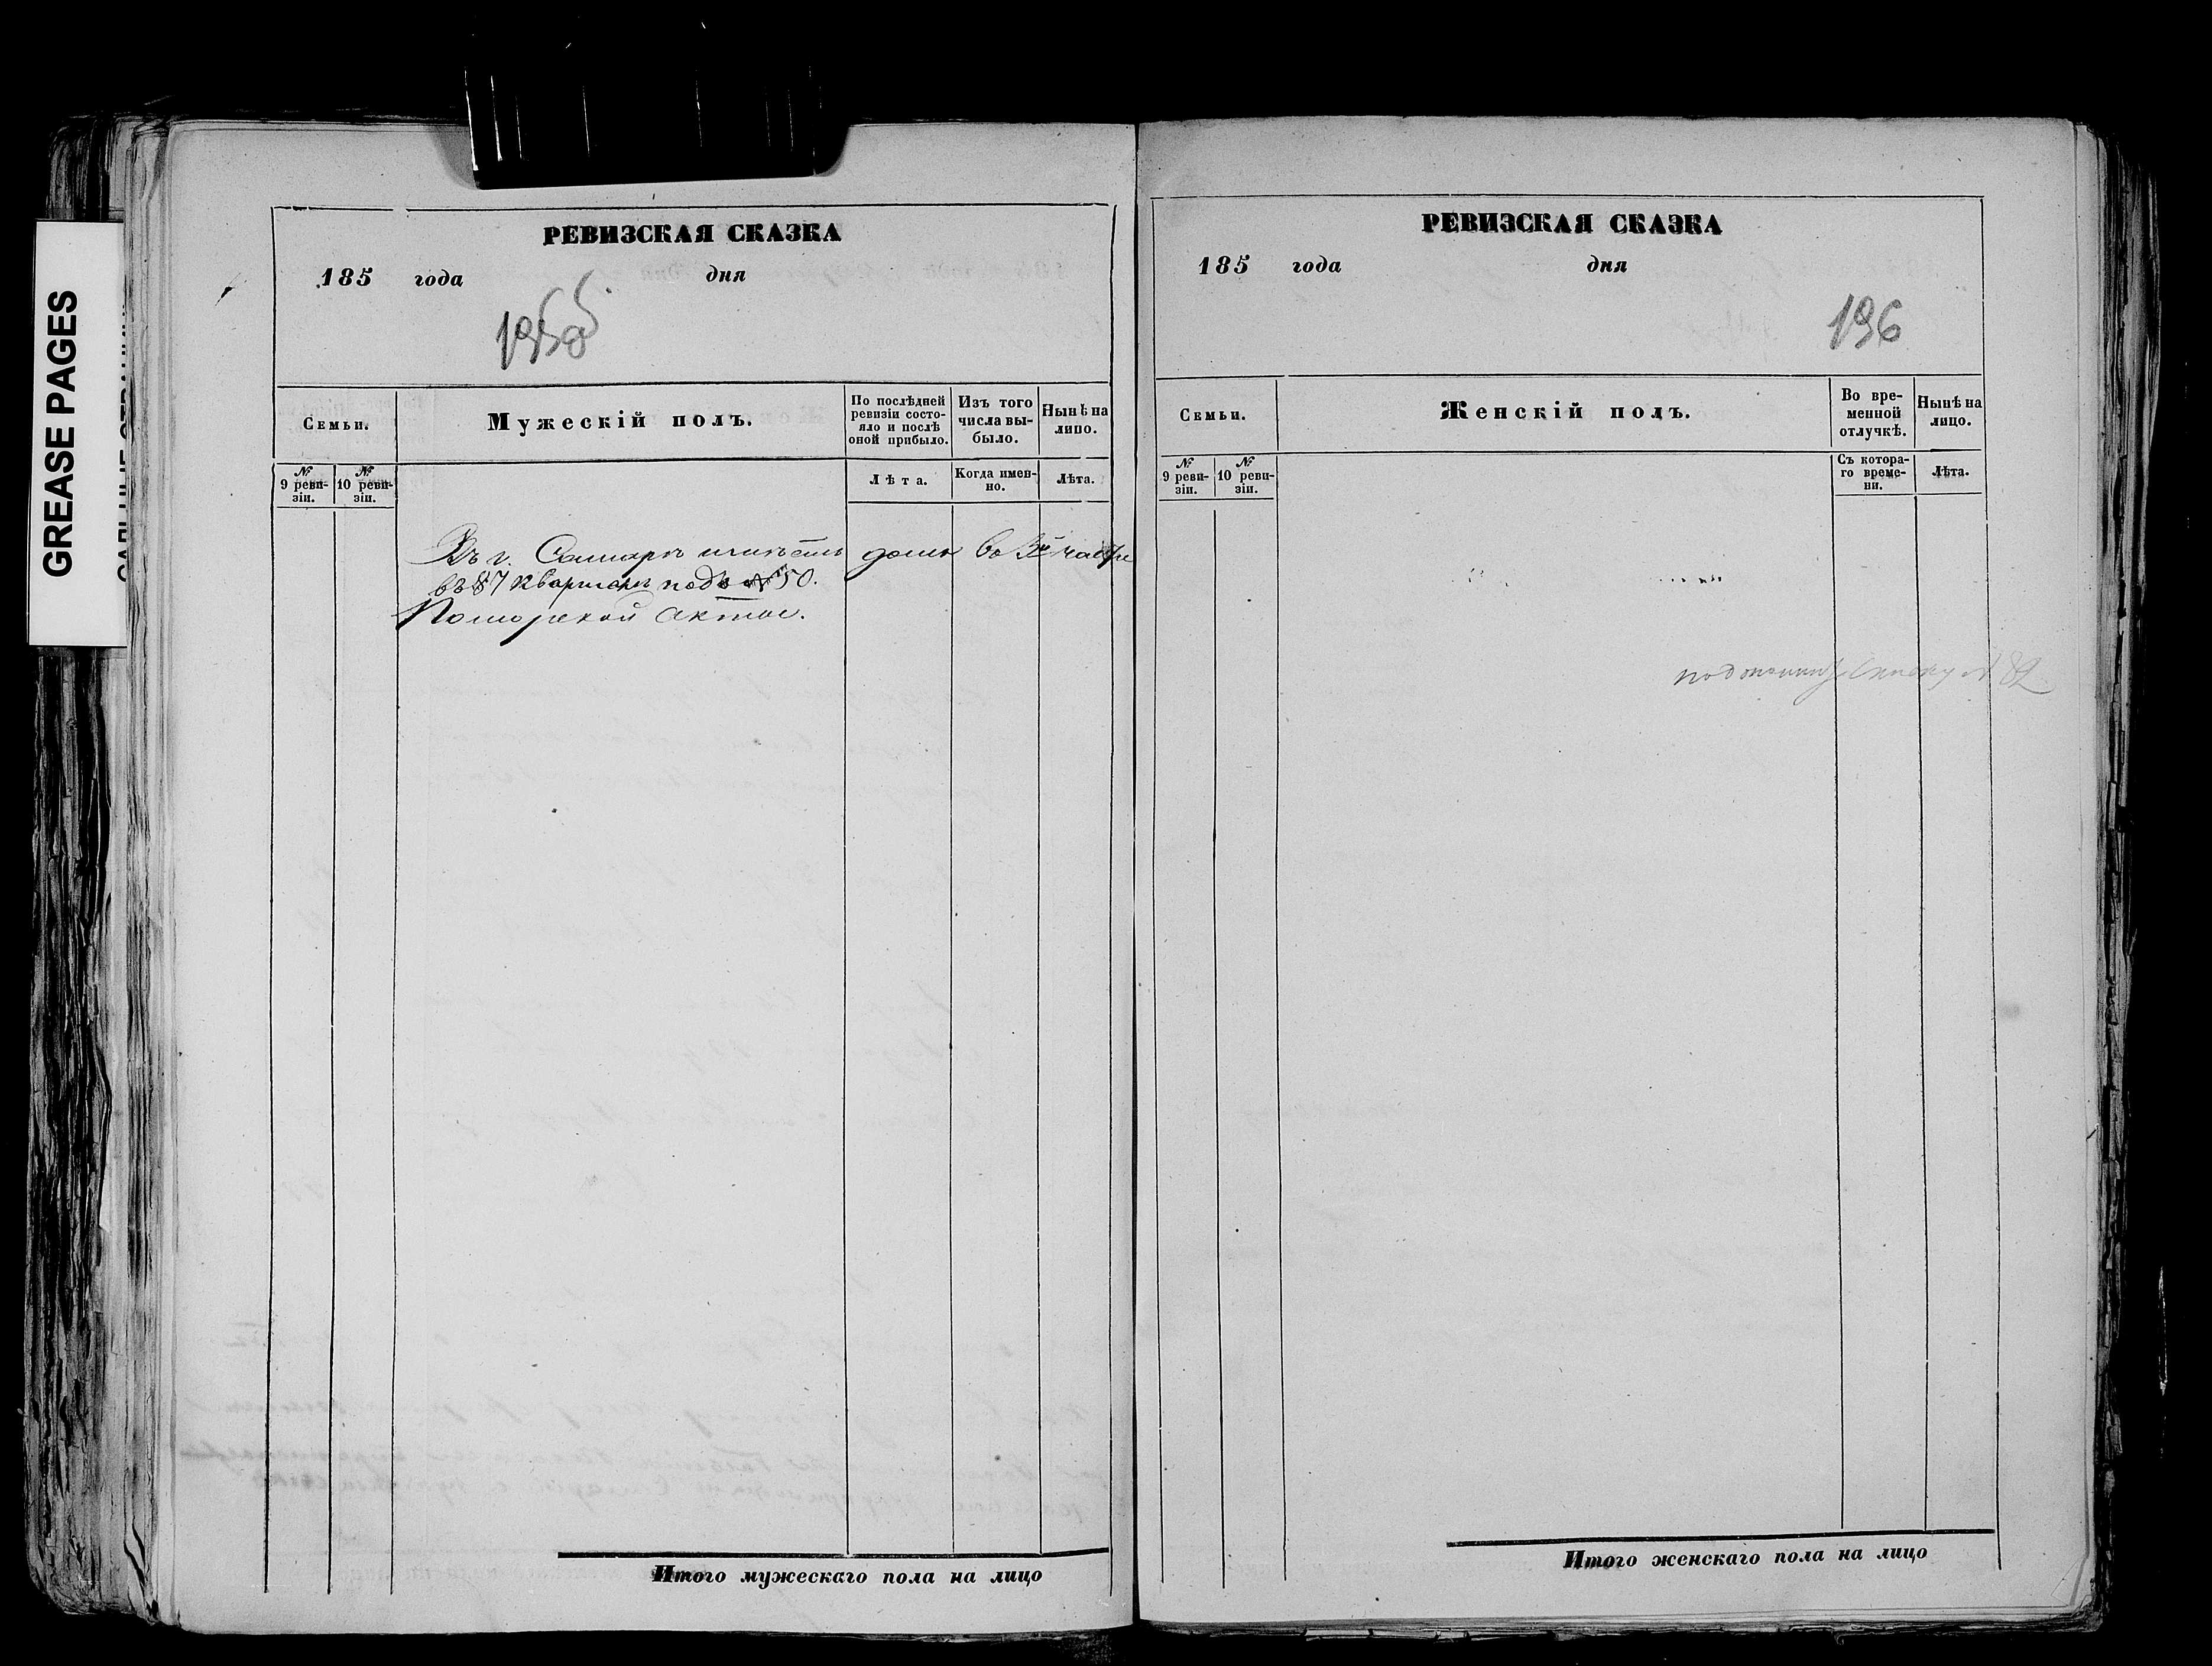 GREASE PAGES
РЕВИЗСКАЯ СКАЗКА
185 года дня
Семьи.
Мужескій полъ.
По послѣдней ревизіи состояло и послѣ оной прибыло.
Изъ того числа выбыло.
Нынѣ на лицо.
№ 9 ревизіи.
№ 10 ревизіи.
Лѣта.
Когда именно.
Лѣта.
Въ г. Самарѣ имѣетъ домъ во 2й части
въ 87 кварталѣ подъ № 50.
Итого мужескаго пола на лицо
РЕВИЗСКАЯ СКАЗКА
185 года дня
196
Семьи.
Женскій полъ.
Во временной отлучкѣ.
Нынѣ на лицо.
№ 9 ревизіи.
№ 10 ревизіи.
Съ котораго времени.
Лѣта.
списку № 82
Итого женскаго пола на лицо